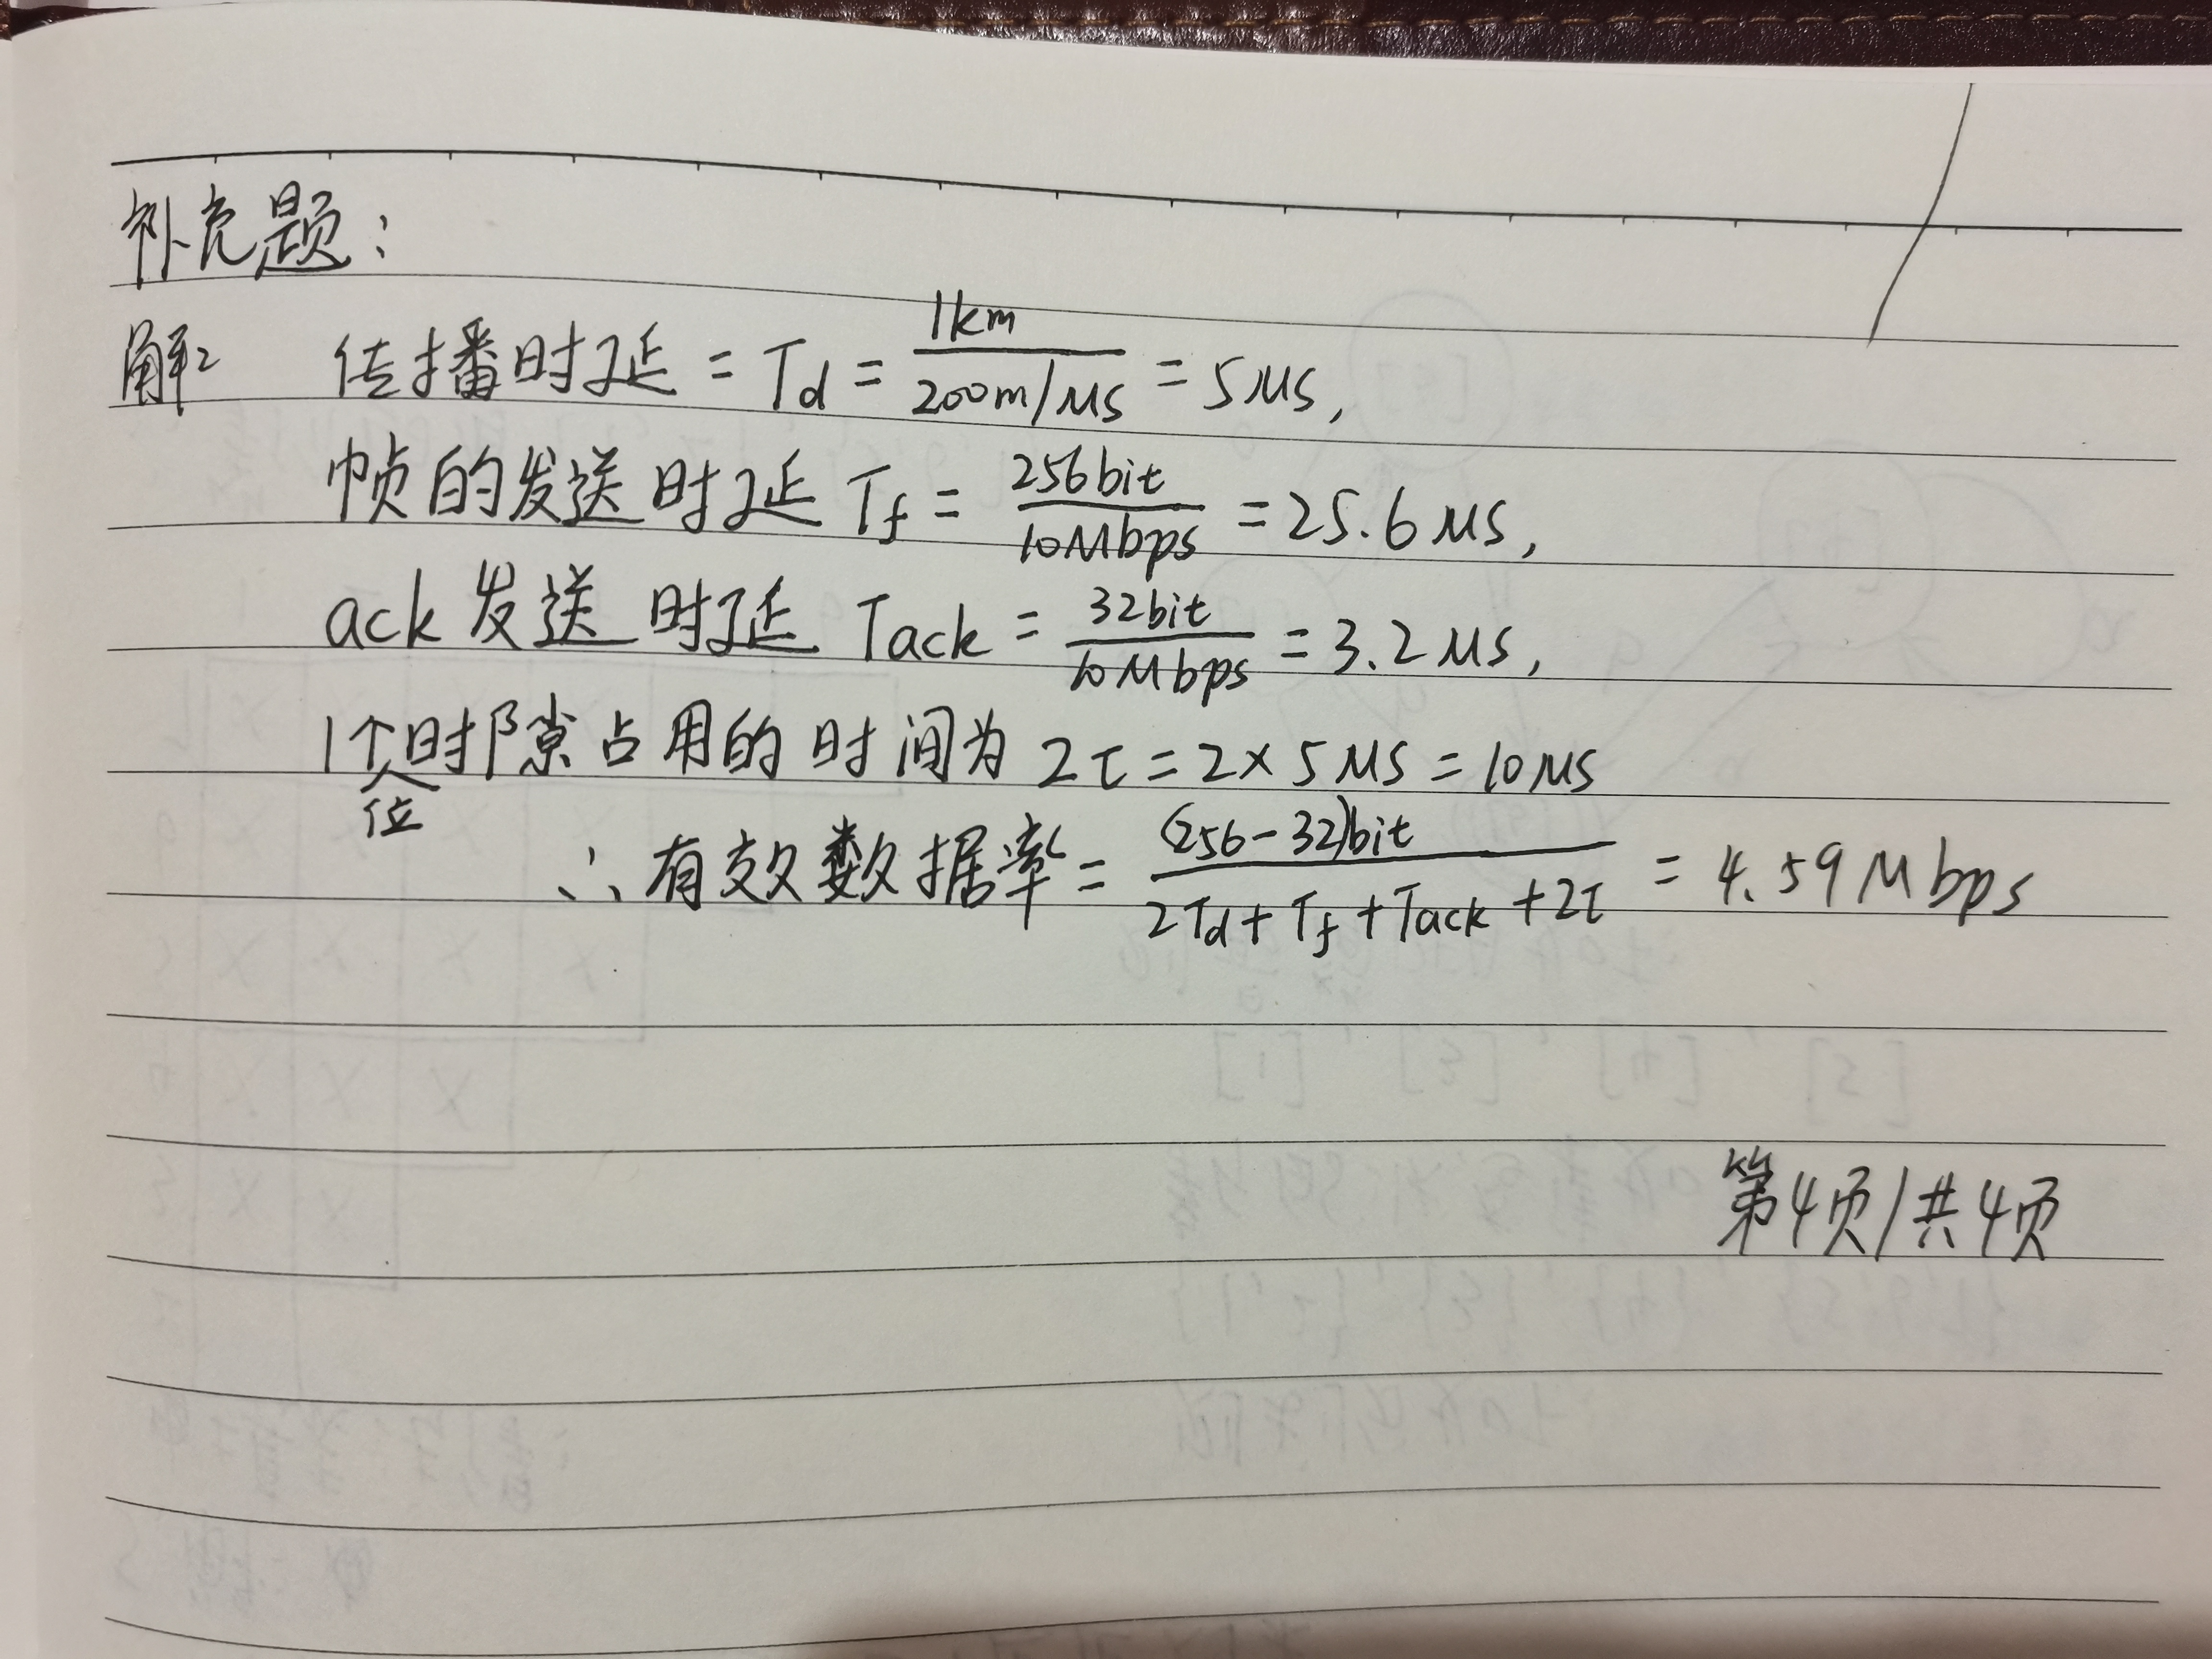 补充题：
解： 传播时延 = Td = 1km / 200m/μs = 5μs,
帧的发送时延 Tf = 256bit / 10Mbps = 25.6μs,
ack发送时延 Tack = 32bit / 10Mbps = 3.2μs,
1个位时隙占用的时间为 2τ = 2×5μs = 10μs
∴ 有效数据率 = (256-32)bit / 2Td + Tf + Tack + 2τ = 4.59Mbps
第4页/共4页